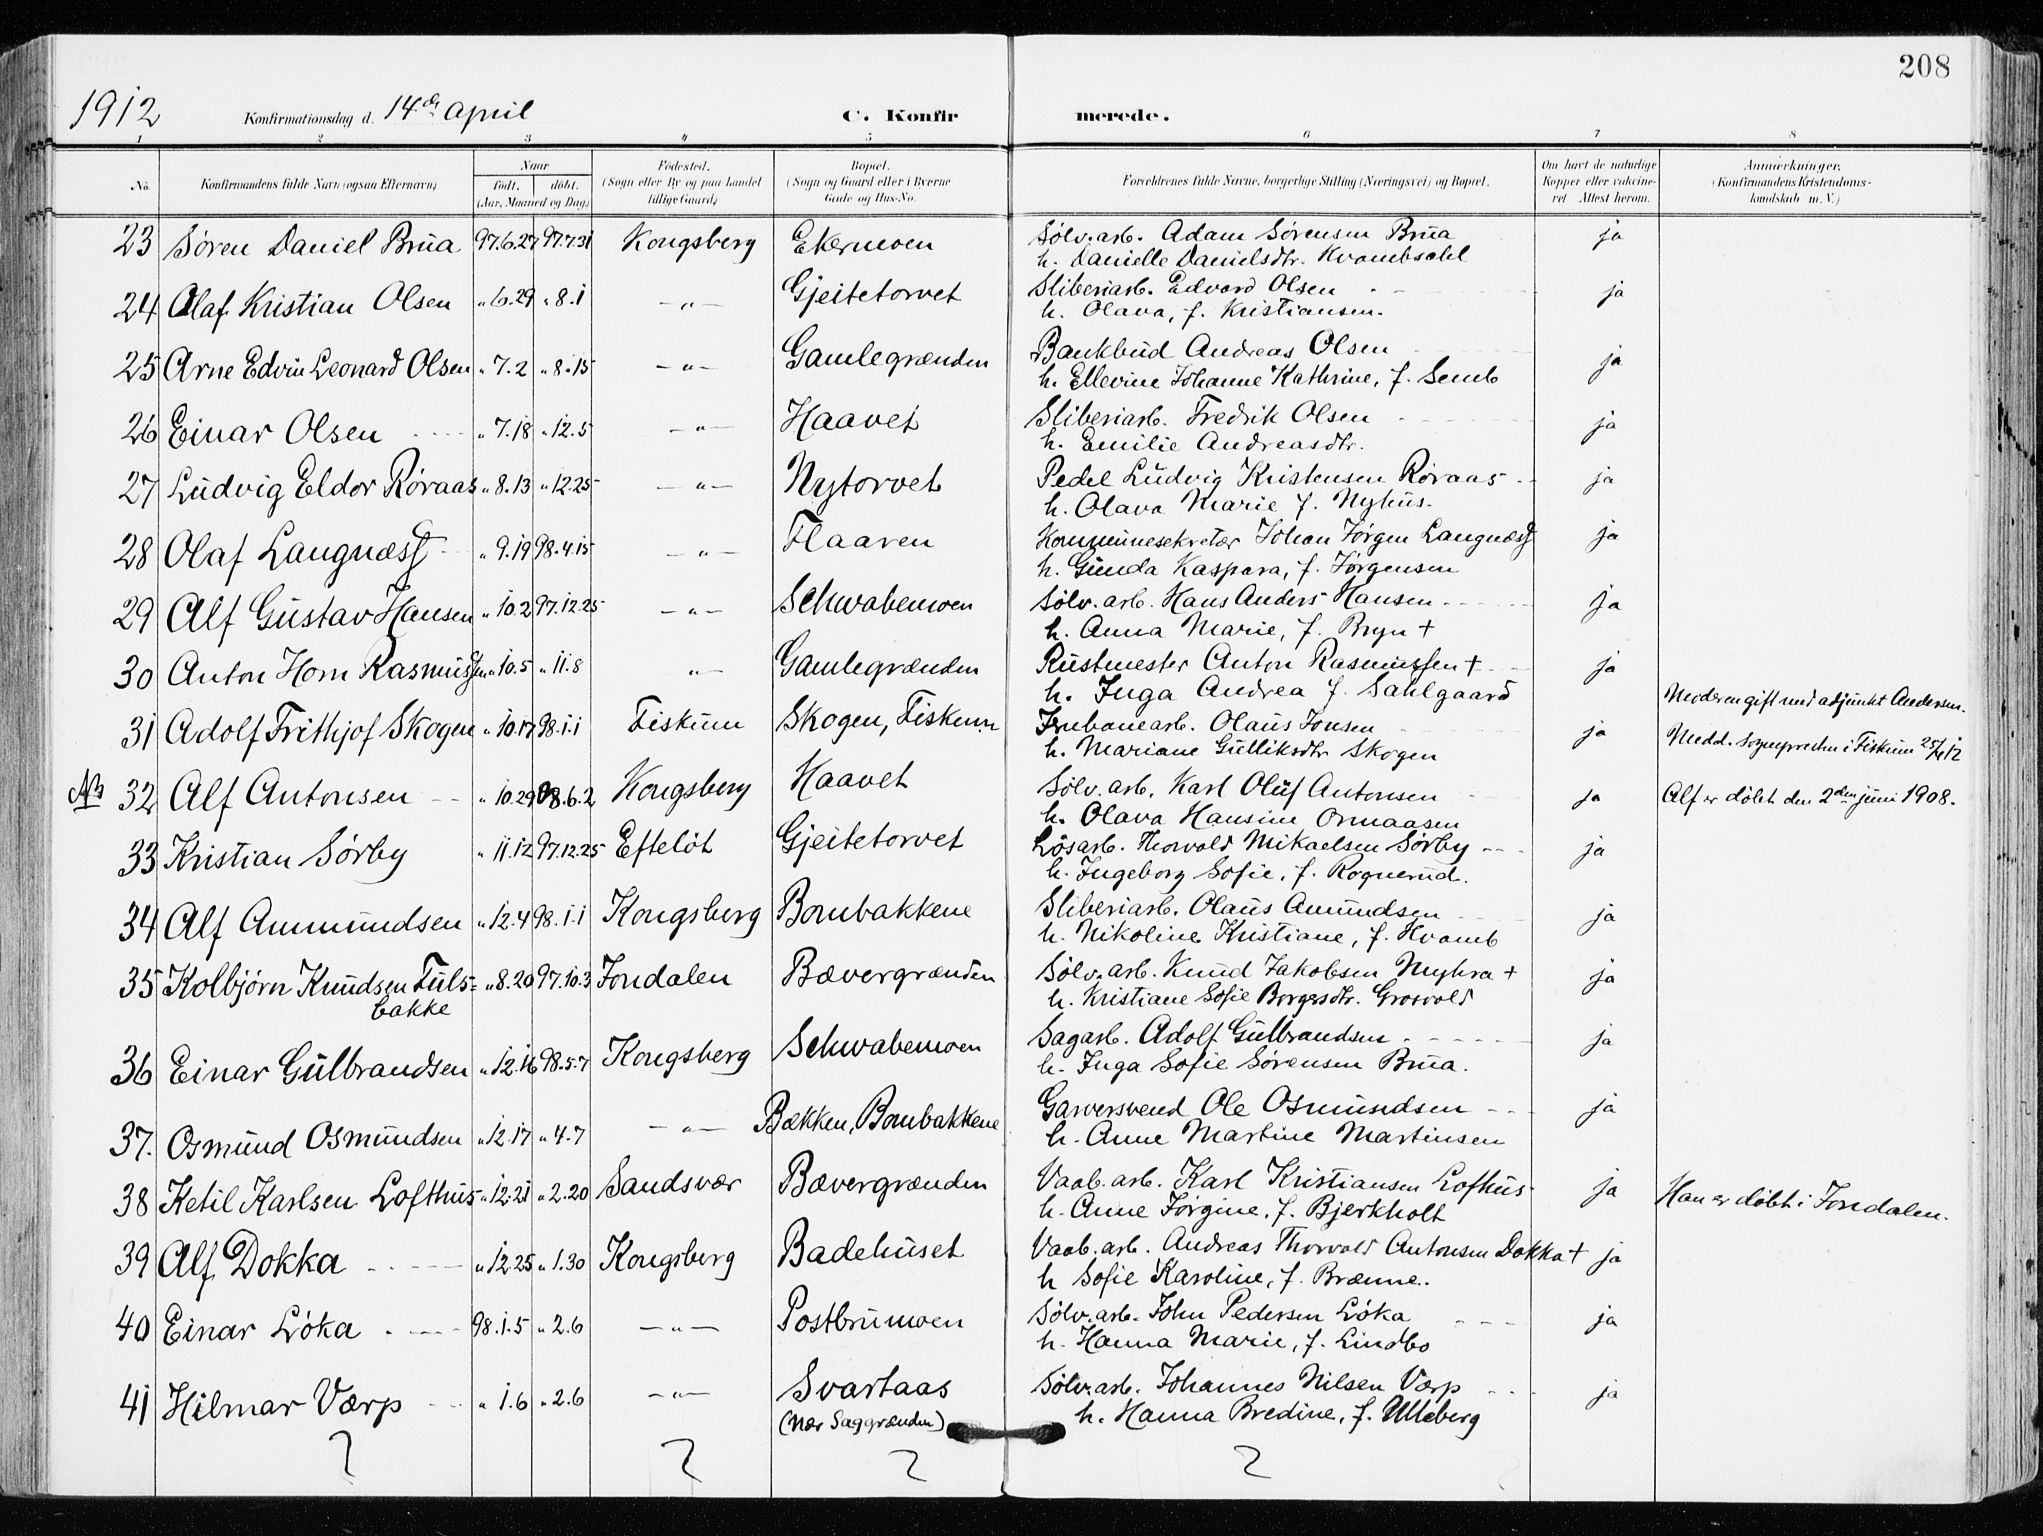 208
1912 Konfirmationsdag d. 14de april C. Konfirmerede.
1 2 3 4 5 6 7 8
No. Konfirmandens fulde Navn (ogsaa Efternavn) Naar født. døbt. (Aar, Maaned og Dag) Fødested. (Sogn eller By og paa Landet tillige Gaard) Bopæl. (Sogn og Gaard eller i Byerne Gade og Hus-No. Forældrenes fulde Navne, borgerlige Stilling (Næringsvei) og Bopæl. Om havt de naturlige Kopper eller vakcineret. Attest herom. Anmærkninger. (Konfirmandens Kristendomskundskab m. V.)
23 Søren Daniel Brua 97.6.27 97.7.31 Kongsberg Ekermoen Sølv.arb. Adam Sørensen Brua ja
h. Danielle Danielsdtr. Kvambsahl
24 Olaf Kristian Olsen " 6.29 " 8.1 — " — Gjeitetorvet Sliberiarb. Edvard Olsen ja
h. Olava, f. Kristiansen.
25 Arne Edvin Leonard Olsen " 7.2 " 8.15 — " — Gamlegrænden Bankbud Andreas Olsen ja
h. Ellevine Johanne Kathrine, f. Semb
26 Einar Olsen " 7.18 " 12.5 — " — Haavet Sliberiarb. Fredrik Olsen ja
h. Emilie Andreasdtr.
27 Ludvig Eldor Røraas " 8.13 " 12.25 — " — Nytorvet Pedel Ludvig Kristensen Røraas ja
h. Olava Marie f. Nyhus.
28 Olaf Langnæss " 9.19 98.4.15 — " — Flaaren Kommunesekretær Johan Jørgen Langnæss ja
h. Gunda Kaspara, f. Jørgensen
29 Alf Gustav Hansen " 10.2 97.12.25 — " — Schwabemoen Sølv.arb. Hans Anders Hansen ja
h. Anna Marie, f. Bryn +
30 Anton Horn Rasmussen " 10.5 " 11.8 " — Gamlegrænden Rustmester Anton Rasmussen + ja
h. Inga Andrea f. Sahlgaard Moderen gift med adjunkt Andersen.
31 Adolf Frithjof Skogen " 10.17 98.1.1 Fiskum Skogen, Fiskum Olaus Jonsen ja Medd. sognepresten i Fiskum 25/4 12
h. Mariane Gulliksdtr Skogen
NB 32 Alf Antonsen " 10.29 98.6.2 Kongsberg Haavet Sølv.arb. Karl Oluf Antonsen ja Alf er døbt den 2den juni 1908.
h. Olava Hansine Ormaasen
33 Kristian Sørby " 11.12 97.12.25 Efteløt Gjeitetorvet Løsarb. Thorvald Mikaelsen Sørby ja
h. Ingeborg Sofie, f. Rognerud.
34 Alf Ammundsen " 12.4 98.1.1 Kongsberg Bombakkene Sliberiarb. Olaus Amundsen ja
h. Nikoline Kristiane, f. Hvamb
35 Kolbjørn Knudsen Fuls= " 8.20 97.10.3 Jondalen Bævergrænden Sølv.arb. Knud Jakobsen Myhra + ja
bakke h. Kristiane Sofie Borgersdtr. Grosvold
36 Einar Gulbrandsen " 12.16 98.5.7 Kongsberg Schwabemoen Sagarb. Adolf Gulbrandsen ja
h. Inga Sofie Sørensen Brua.
37. Osmund Osmundsen " 12.17 " 4.7 — " — Bækken, Bombakkene Garversvend Ole Osmundsen ja
h. Anne Martine Martinsen
38 Ketil Karlsen Lofthus " 12.21 " 2.20 Sandsvær Bævergrænden Vaab.arb. Karl Kristiansen Lofhus ja Han er døbt i Jondalen.
h. Anne Jørgine, f. Bjerkholt
39 Alf Dokka " 12.25 " 1.30 Kongsberg Badehuset Vaab.arb. Andreas Thorvald Antonsen Dokka + ja
h Sofie Karoline, f. Brænne.
40 Einar Løka 98.1.5 " 2.6 — " — Postbrumoen Sølv.arb. John Pedersen Løka ja
h. Hanna Marie, f. Lindbo
41 Hilmar Værp " 1.6 " 2.6 — " — Svartaas Sølv.arb. Johannes Nilsen Værp ja
(nær Saggrænden) h. Hanna Bredine, f. Ulleberg